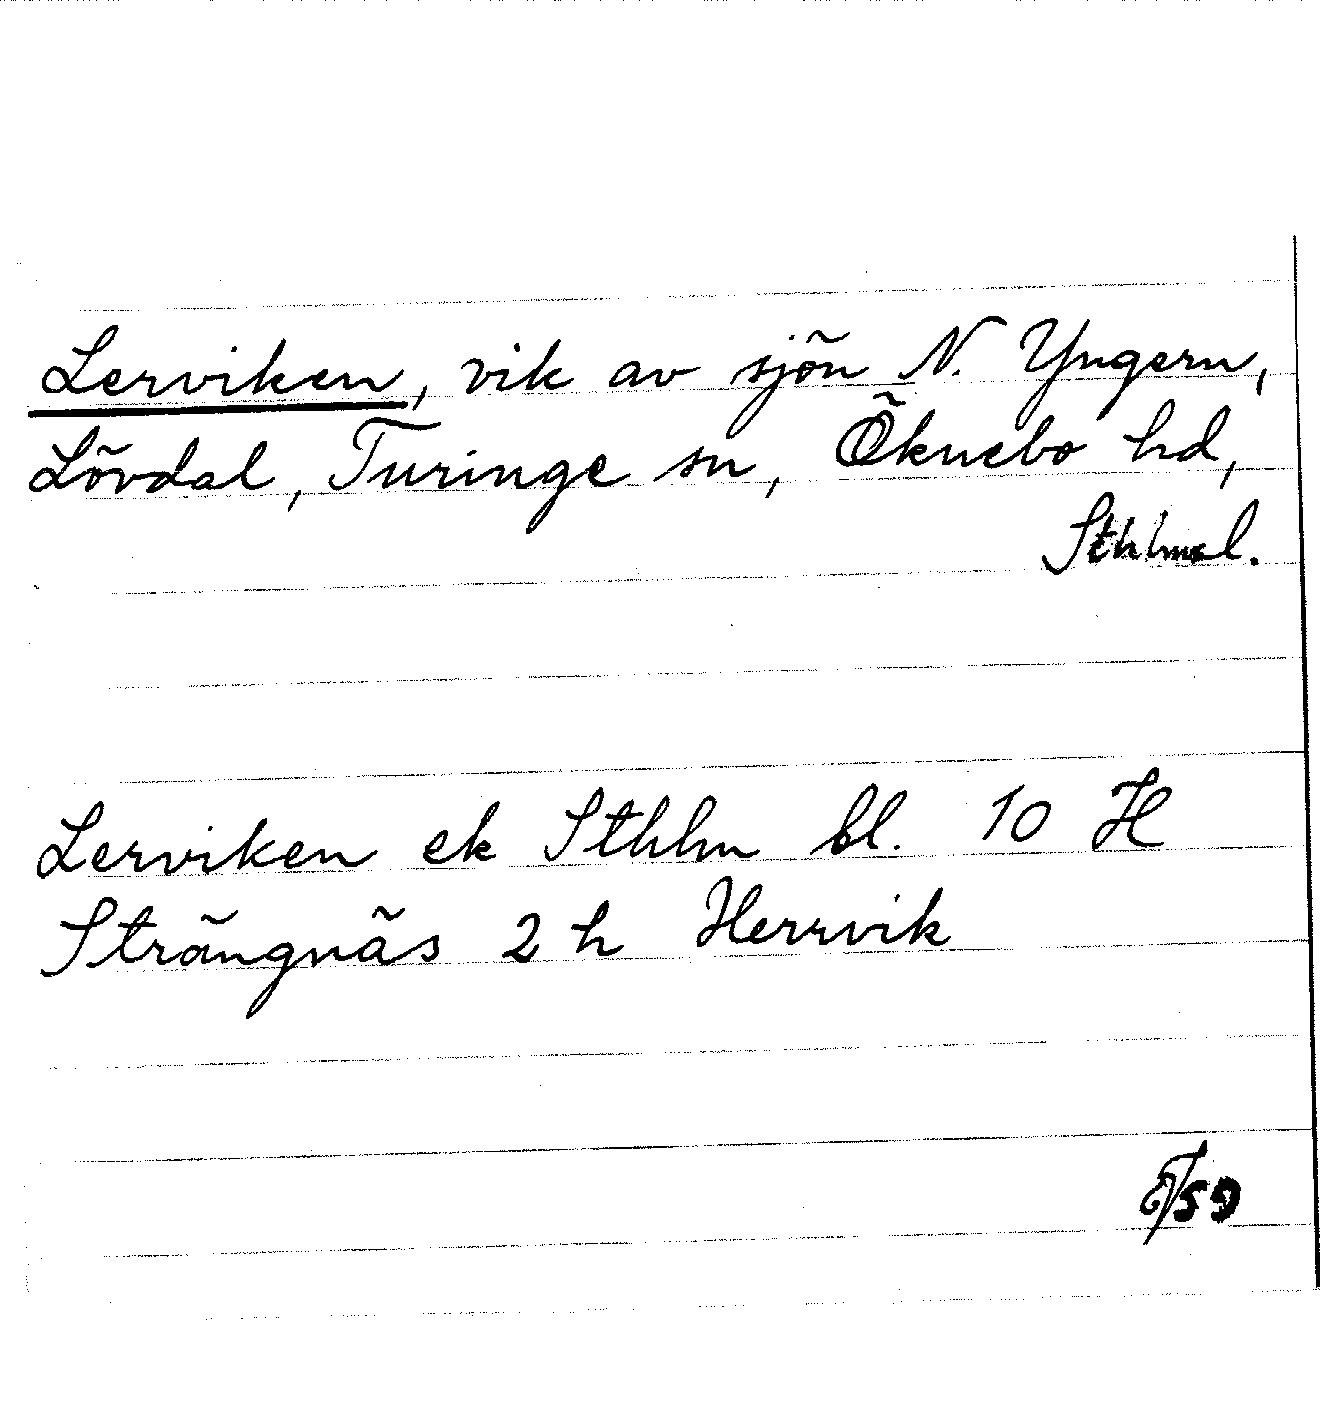 Lerviken, vik av sjön N. Yngern,
Lövdal, Turinge sn, Öknebo hd,
Sthlmsl.
Lerviken ek Sthlm bl. 10 H
Strängnäs 2 h Herrvik
59